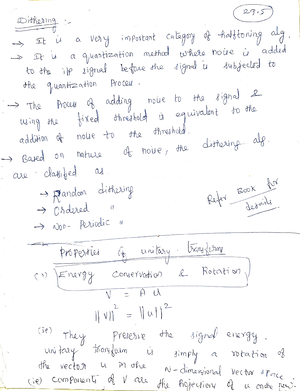 29.5
Dithering :-
→ It is a very important category of halftoning alg.
→ It is a quantization method where noise is added
to the i/p signal before the signal is subjected to
the quantization process.
→ The process of adding noise to the signal &
using the fixed threshold is equivalent to the
addition of noise to the threshold
→ Based on nature of noise, the dithering alg.
are classified as
→ Random dithering
→ Ordered "
→ Non-Periodic "
Refer Book for
details
Properties of unitary Transform
(1) Energy Conservation & Rotation
V = A u
||v||² = ||u||²
(ie) They Preserve the signal energy.
unitary transform is simply a rotation of
the vector u in the N-dimensional vector space
(ie) components of V are the Projections of u